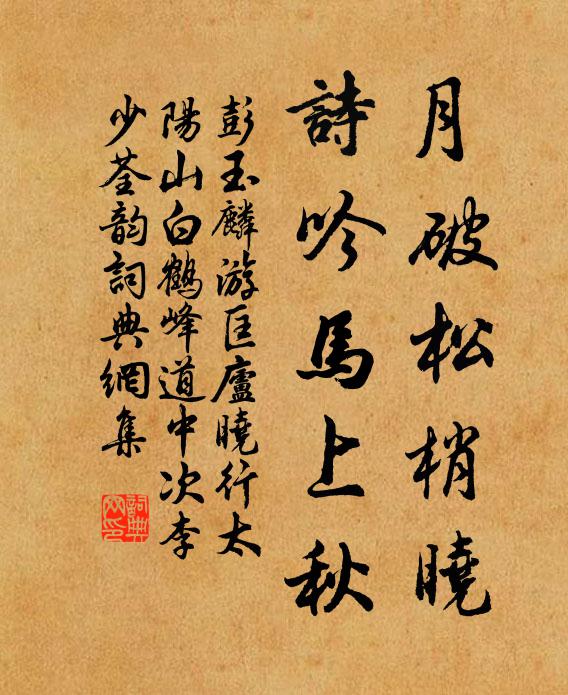 月破松梢曉
詩吟馬上秋
彭玉麟游匡廬曉行太
陽山白鶴峰道中次李
少荃韵詞典網集
詞典網印